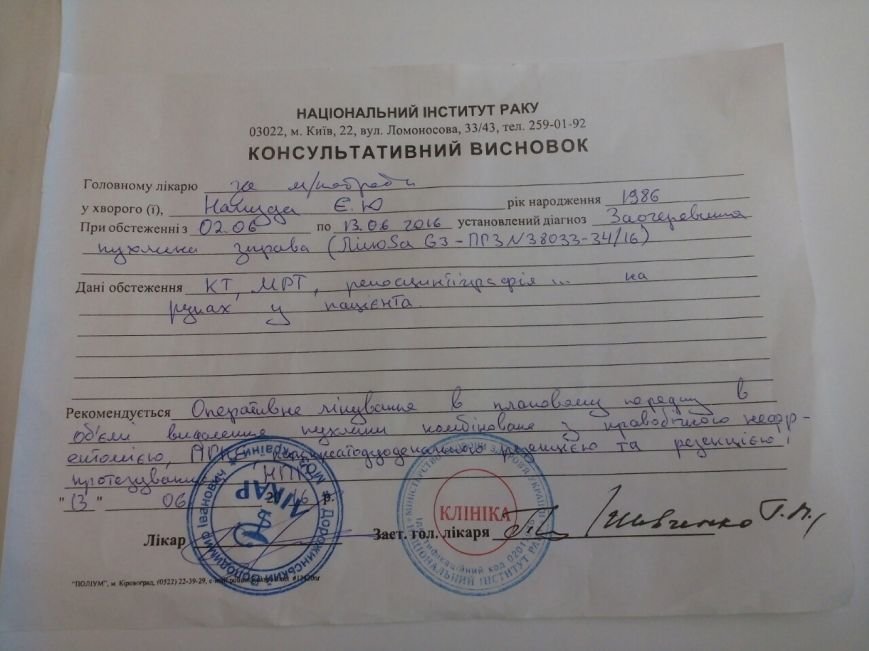 НАЦІОНАЛЬНИЙ ІНСТИТУТ РАКУ
03022, м. Київ, 22, вул. Ломоносова, 33/43, тел. 259-01-92
КОНСУЛЬТАТИВНИЙ ВИСНОВОК
Головному лікарю
у хворого (ї), Є.Ю рік народження 1986
При обстеженні з 02.06 по 13.06 2016 установлений діагноз Заочеревинна
пухлина справа (Ліпоsa G3 - ПГЗ N38033-34/16)
Дані обстеження КТ, МРТ, реносцинтіграфія ... на
руках у пацієнта.
Рекомендується Оперативне лікування в плановому порядку в
об'ємі видалення пухлини комбіноване з правобічного нефр-
ектомією, резекцією та резекцією і
протезуванням НПВ
"13" 06 2016 р.
Лікар Заст. гол. лікаря Шевченко Г.М.
ЛІКАР
Дорожинський Володимир Іванович
КЛІНІКА
НАЦІОНАЛЬНИЙ ІНСТИТУТ РАКУ
"ПОЛІУМ", м. Кіровоград, (0522) 22-39-29,